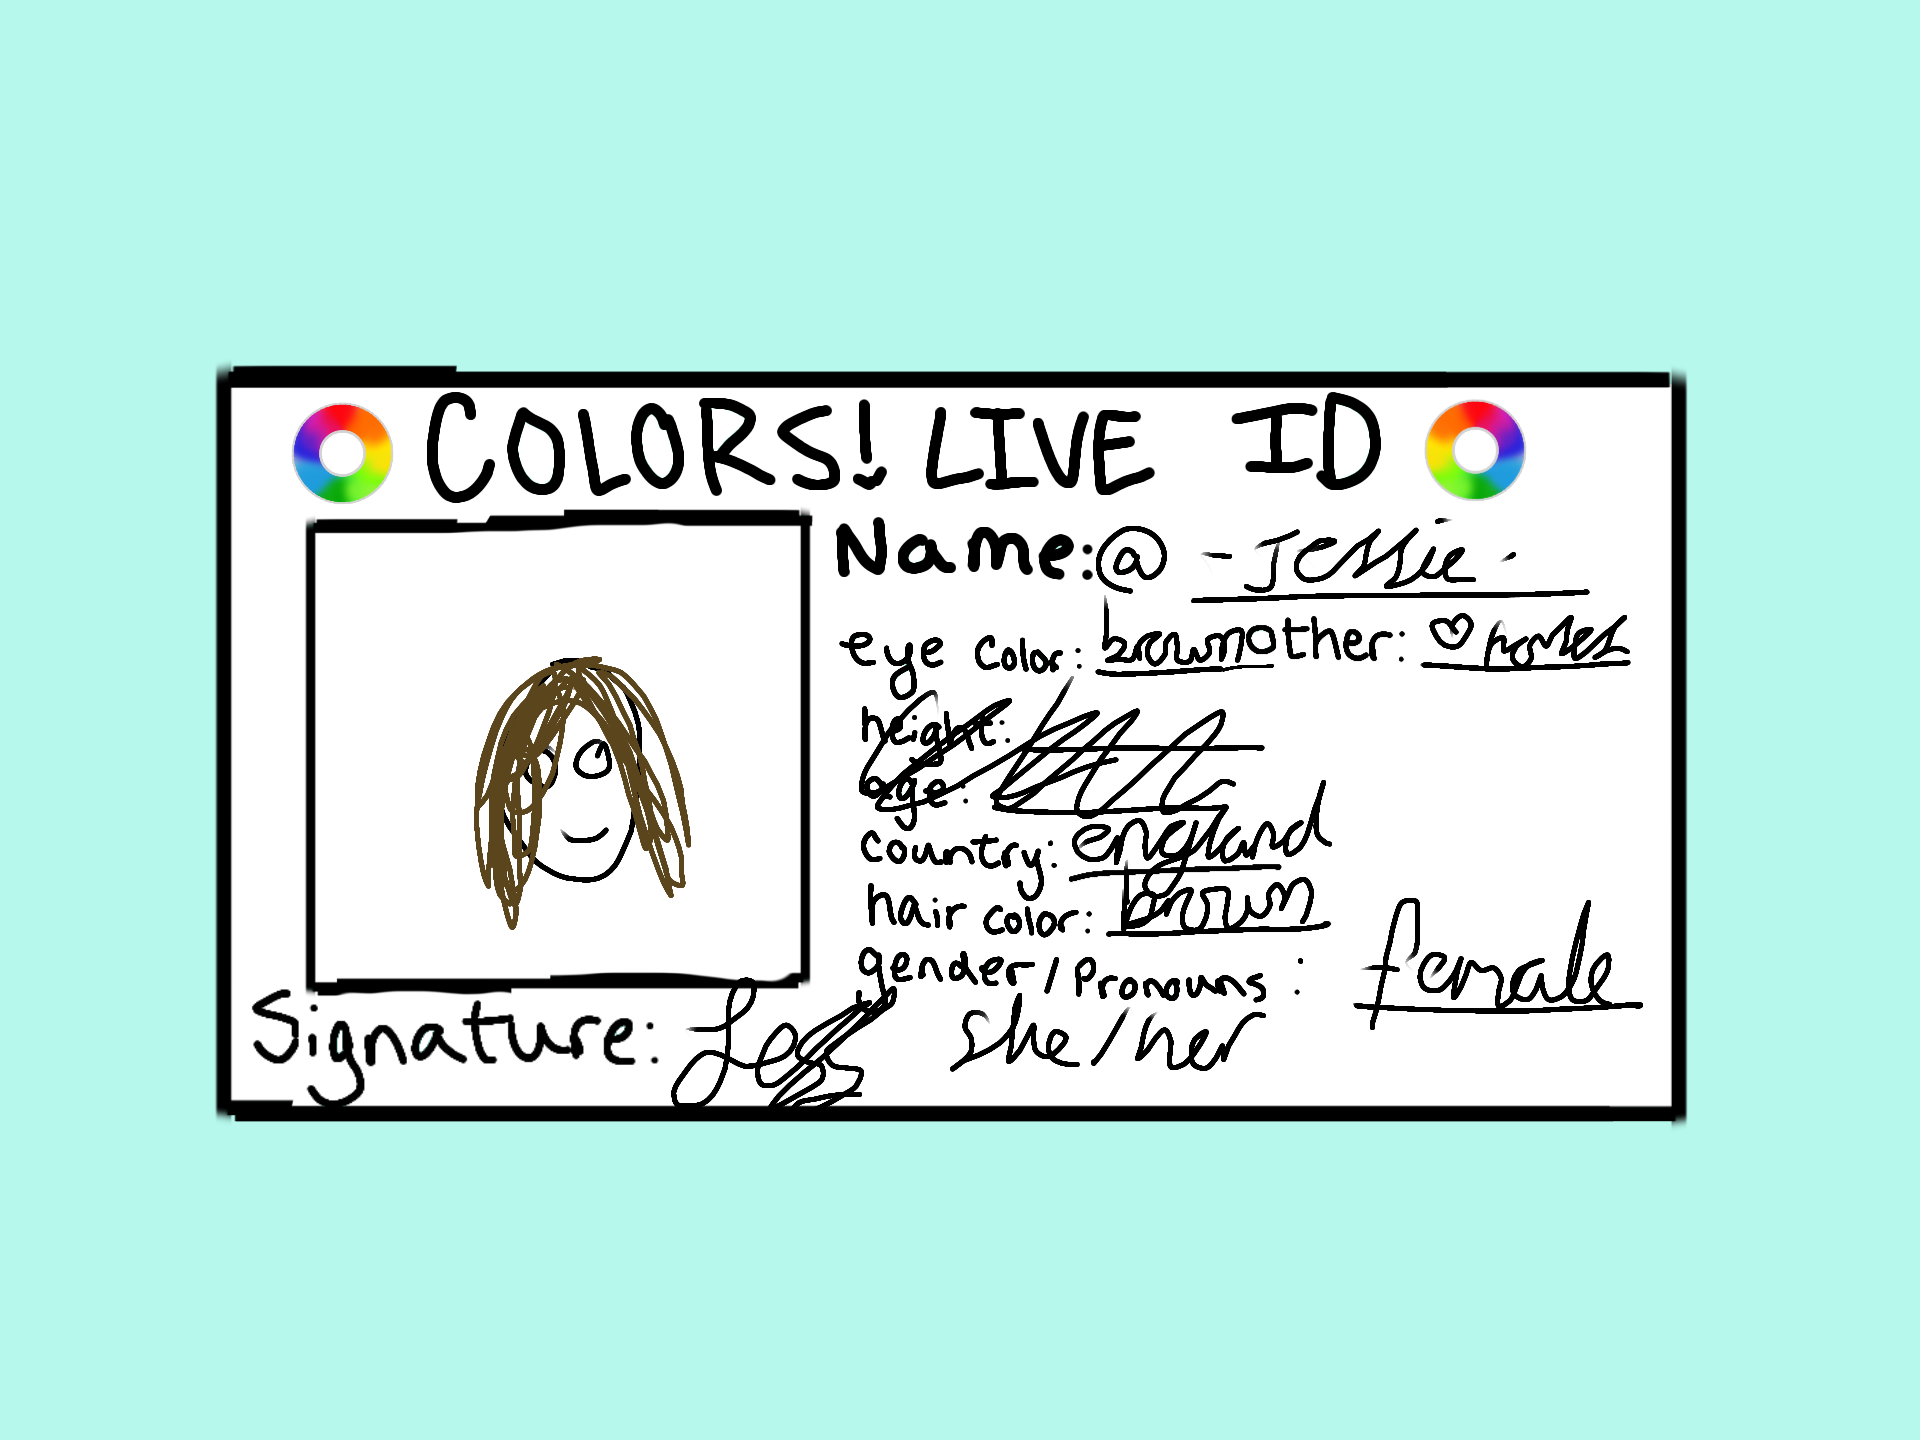 COLORS! LIVE ID
Name: @ -Jessie-
eye color: brown other: ♡ horses
height:
age:
country: england
hair color: brown
gender/Pronouns: female
she/her
Signature: